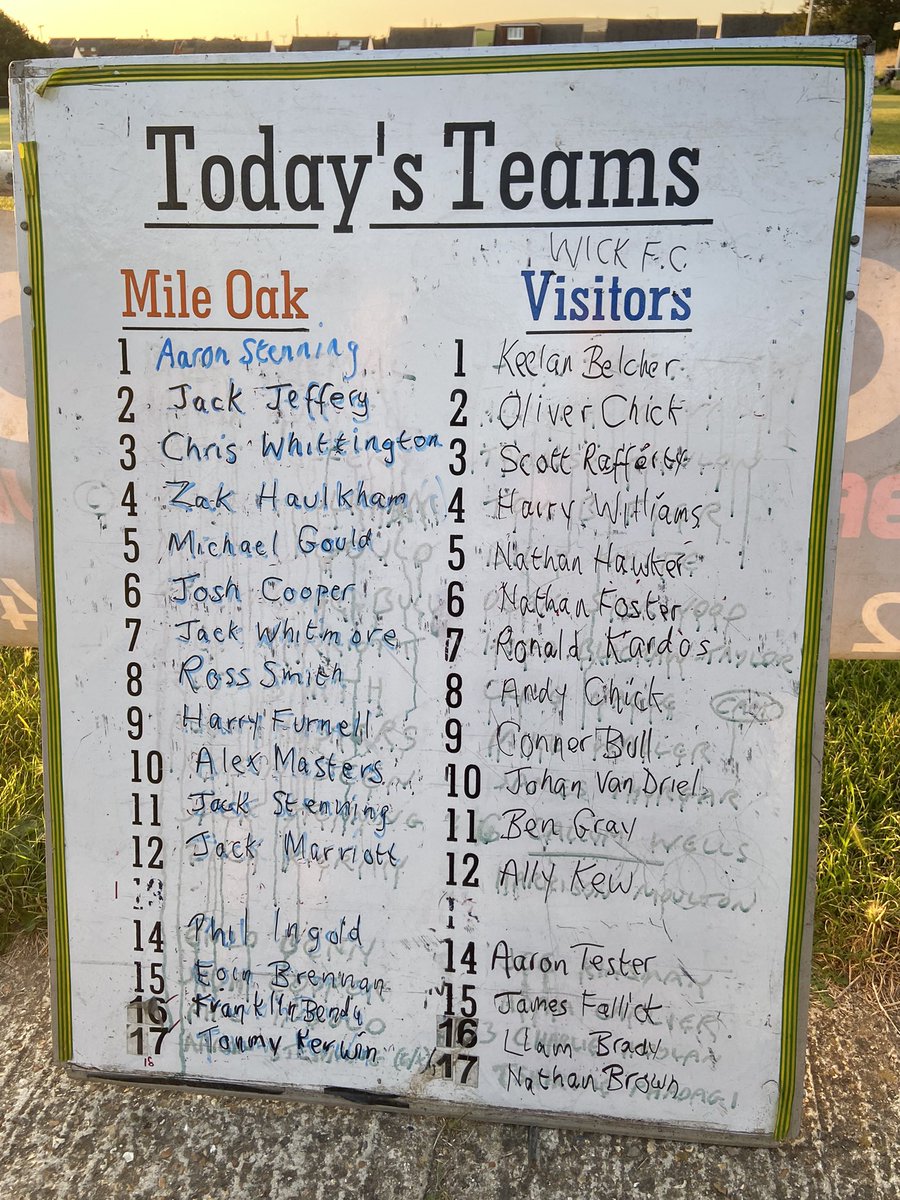 Today's Teams
WICK F.C
Mile Oak
1 Aaron Stenning
2 Jack Jeffery
3 Chris Whittington
4 Zak Haulkham
5 Michael Gould
6 Josh Cooper
7 Jack Whitmore
8 Ross Smith
9 Harry Furnell
10 Alex Masters
11 Jack Stenning
12 Jack Marriott
14 Phil Ingold
15 Eoin Brennan
16 Franklin Bendu
17 Tommy Kerwin
18
Visitors
1 Keelan Belcher
2 Oliver Chick
3 Scott Rafferty
4 Harry Williams
5 Nathan Hawker
6 Nathan Foster
7 Ronald Kardos
8 Andy Chick
9 Conner Bull
10 Johan Van Driel
11 Ben Gray
12 Ally Kew
14 Aaron Tester
15 James Fallick
16 Liam Brady
17 Nathan Brown